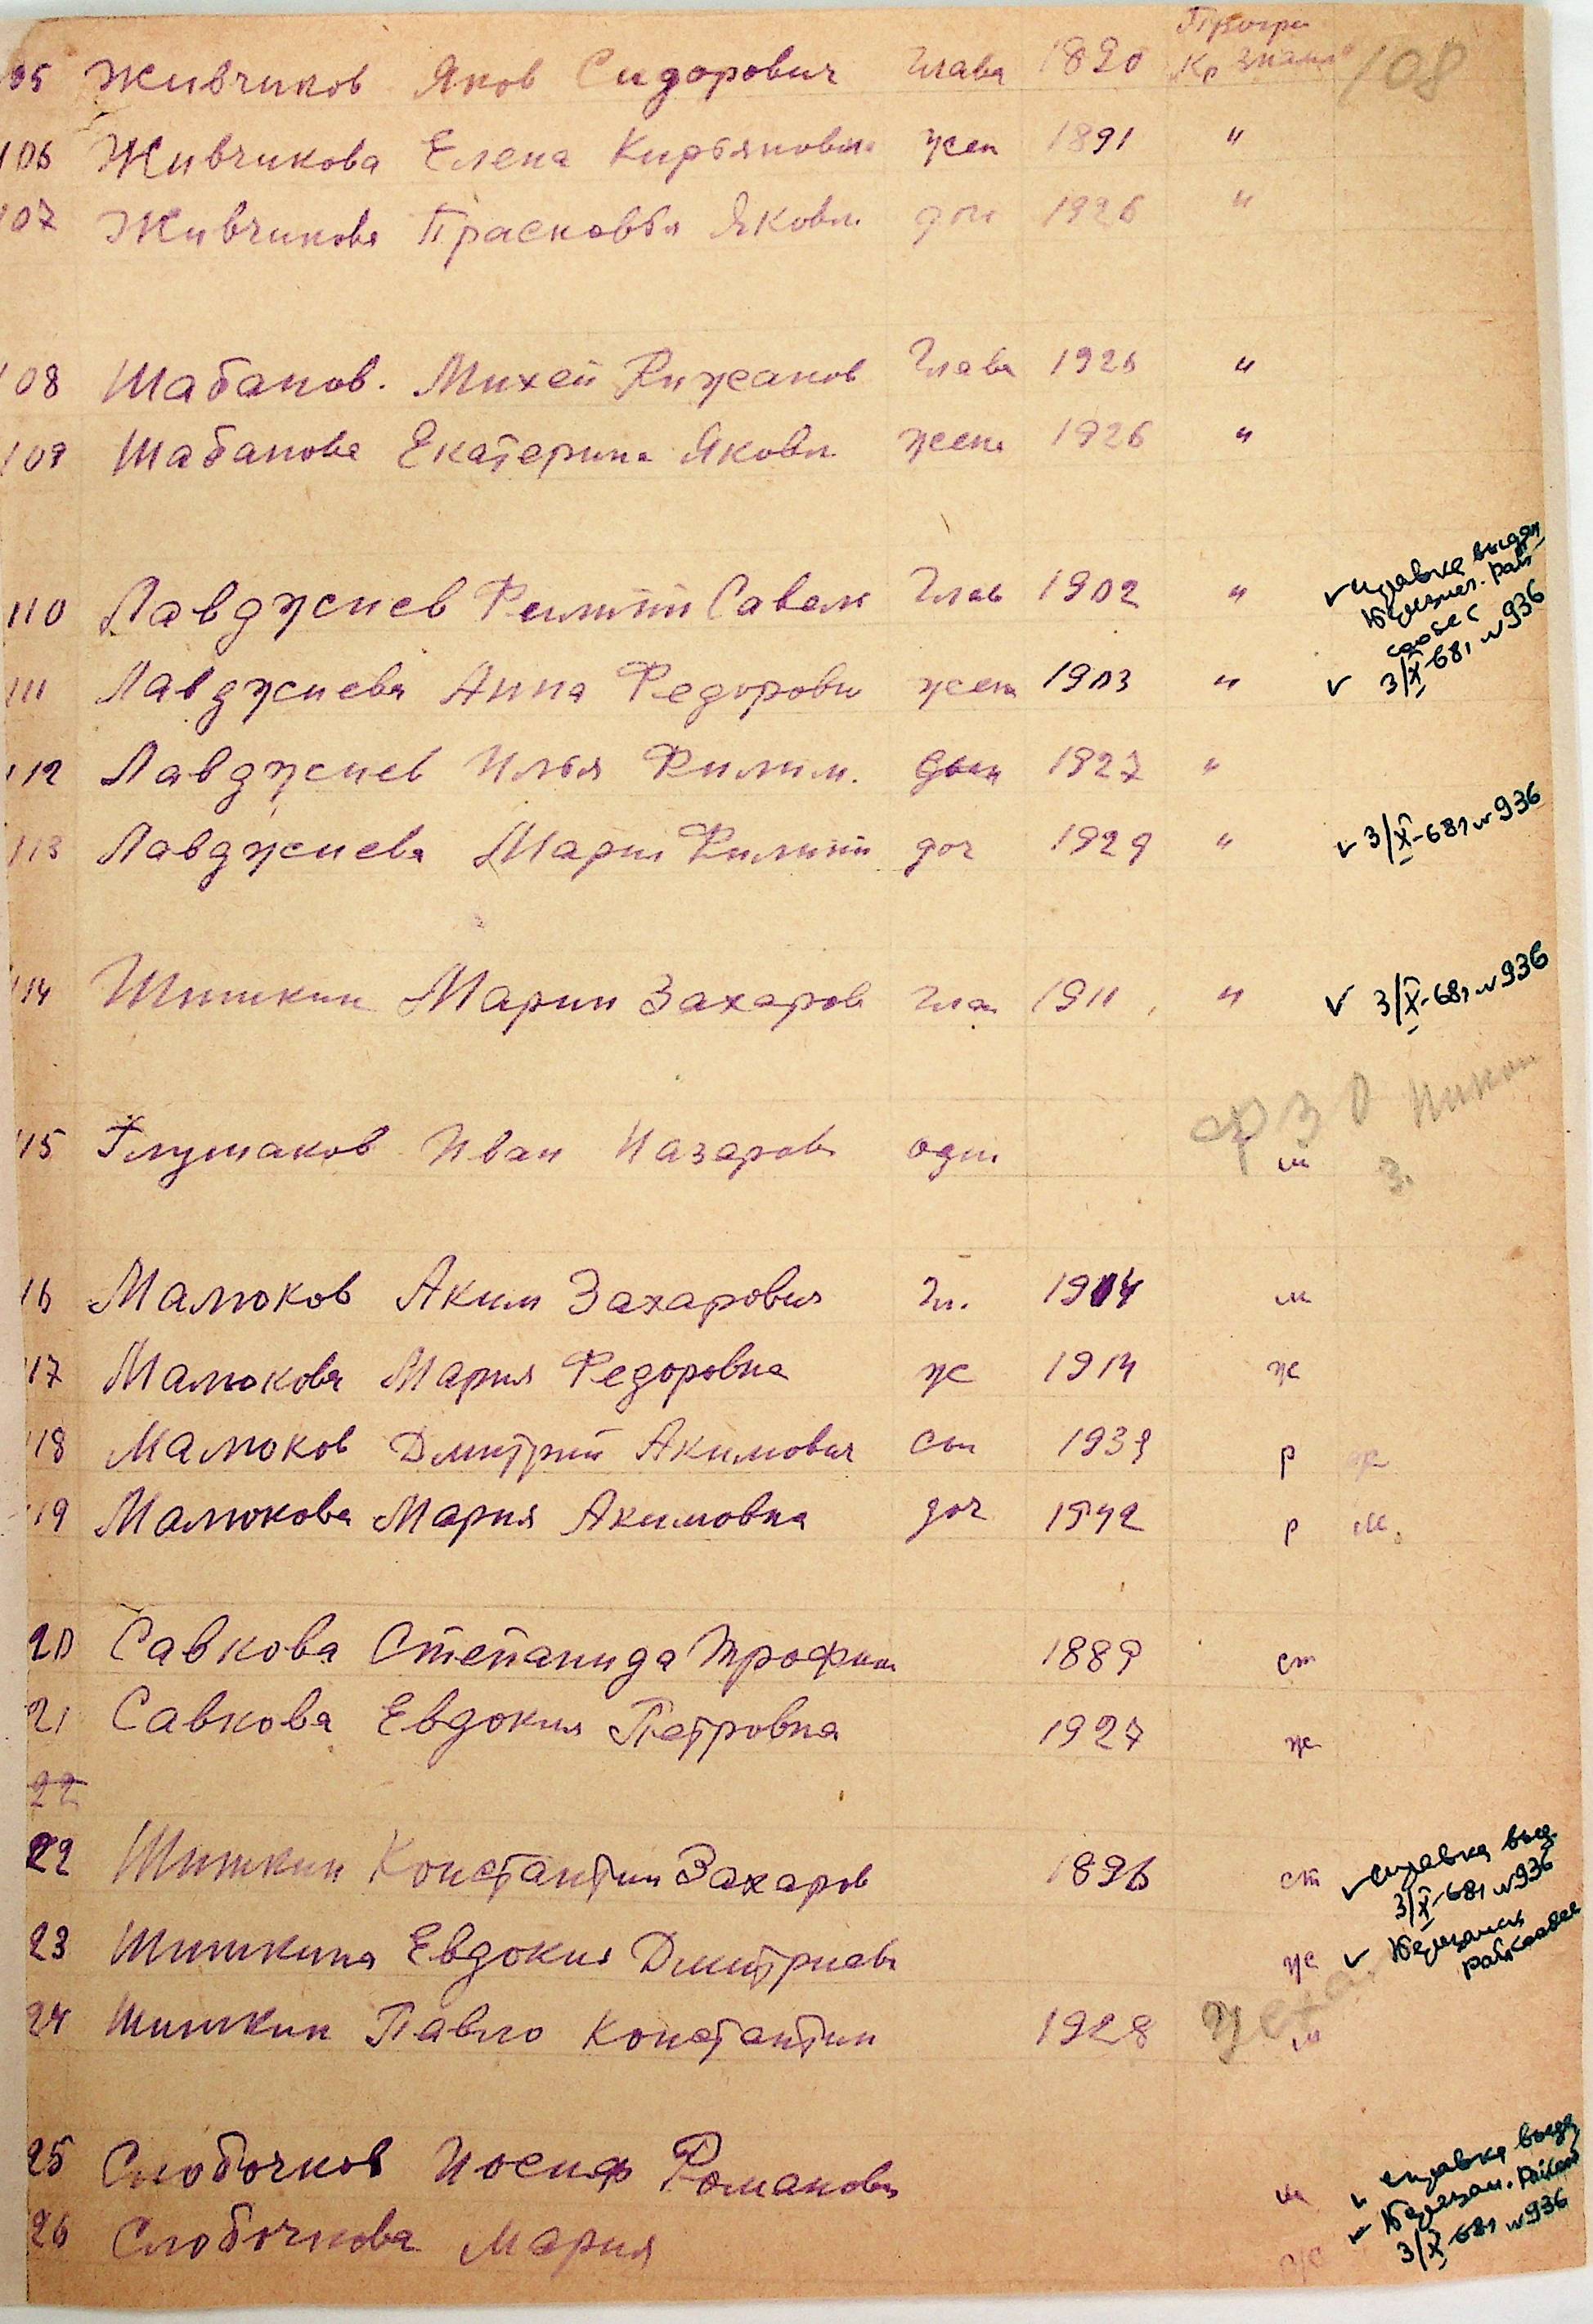 Прогри
05 Живчиков Яков Сидорович глава 1890 "Кр знамя" 108
106 Живчикова Елена Кирьяновна жен 1891 "
107 Живчикова Прасковья Яковл доч 1926 "
108 Шабанов. Михей Рижанов Глава 1926 "
109 Шабанова Екатерина Яковл жена 1926 "
110 Лавджиев Филипп Савел Глав 1902 " ✓ справка выдан
райсобес
3/X-68г №936
111 Лавджиева Анна Федоровн жена 1903 " ✓
112 Лавджиев Илья Филип. сын 1927 "
113 Лавджиева Мария Филипп доч 1929 " ✓ 3/X-68г №936
114 Шишкин Марии Захаров гла 1911 " ✓ 3/X-68г №936
ФЗО Никоп
115 Глушаков Иван Назаров один м з.
16 Малюков Аким Захарович Гл. 1904 м
17 Малюкова Мария Федоровна ж 1914 ж
18 Малюков Дмитрий Акимович сын 1939 р ж
19 Малюкова Мария Акимовна доч 1942 р м.
20 Савкова Степанида Трофим 1889 ст
21 Савкова Евдокия Петровна 1927 ж
22
22 Шишкин Константин Захаров 1896 ст ✓ справка выд.
3/X-68г №936
23 Шишкина Евдокия Дмитриевн ж ✓
24 Шишкин Павло Константин 1928 м
25 Слободчков Иосиф Романович м ✓ справка выдан
26 Слобочкова Мария ж ✓
3/X-68г №936